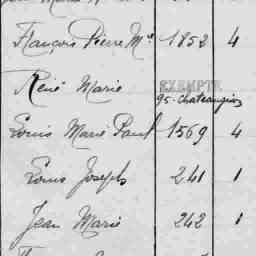 François Pierre Me 1852 4
René Marie EXEMPTÉ
95-Chateaugiron
Louis Marie Paul 1569 4
Louis Joseph 241 1
Jean Marie 242 1